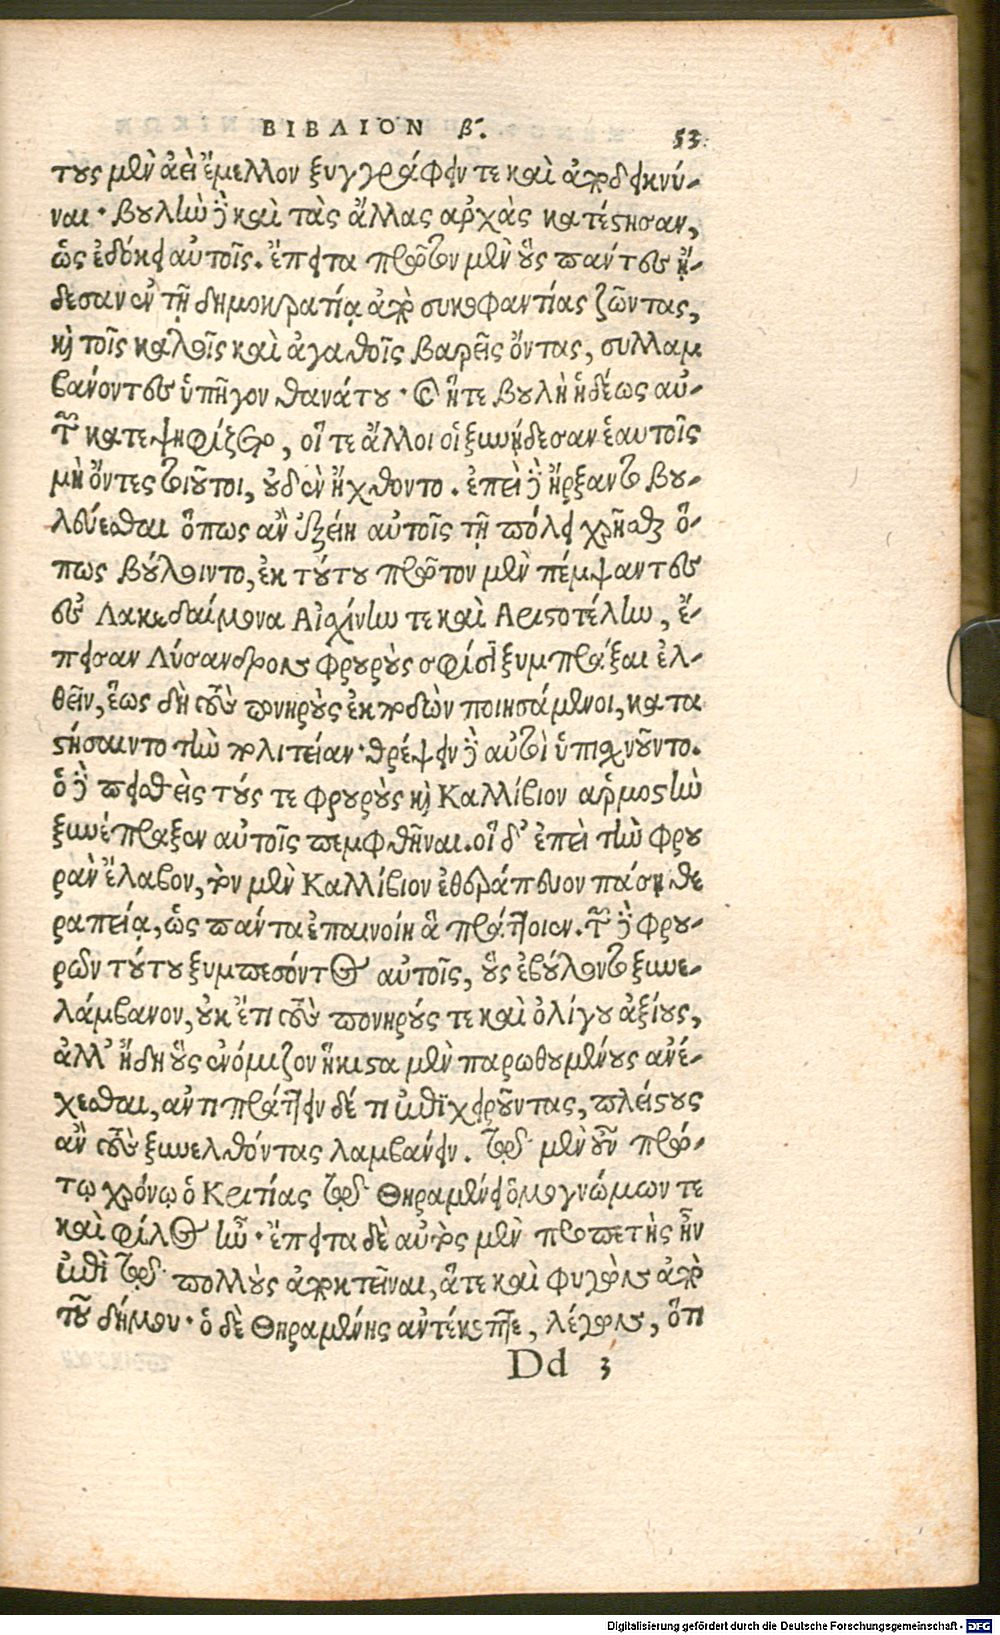 ΒΙΒΛΙΟΝ β΄. 53
τους μὲν ἀεὶ ἔμελλον ξυγγράφειν τε καὶ ἀποδεικνύ-
ναι· βουλὴν δὲ καὶ τὰς ἄλλας ἀρχὰς κατέστησαν,
ὡς ἐδόκει αὐτοῖς. ἔπειτα πρῶτον μὲν οὓς πάντες ᾔ-
δεσαν ἐν τῇ δημοκρατίᾳ ἀπὸ συκοφαντίας ζῶντας,
καὶ τοῖς καλοῖς καὶ ἀγαθοῖς βαρεῖς ὄντας, συλλαμ
βάνοντες ὑπῆγον θανάτου· καὶ ἥτε βουλὴ ἡδέως αὐ-
τῶν κατεψηφίζετο, οἵ τε ἄλλοι οἱ ξυνῄδεσαν ἑαυτοῖς
μὴ ὄντες τοιοῦτοι, οὐδὲν ἤχθοντο. ἐπεὶ δὲ ἤρξαντο βου-
λεύεσθαι ὅπως ἂν ἐξείη αὐτοῖς τῇ πόλει χρῆσθαι ὅ-
πως βούλοιντο, ἐκ τούτου πρῶτον μὲν πέμψαντες
ἐς Λακεδαίμονα Αἰσχίνην τε καὶ Αριστοτέλην, ἔ-
πεισαν Λύσανδρον φρουροὺς σφίσι ξυμπρᾶξαι ἐλ-
θεῖν, ἕως δὴ τοὺς πονηροὺς ἐκποδὼν ποιησάμενοι, κατα
στήσαιντο τὴν πολιτείαν· θρέψειν δὲ αὐτοὶ ὑπισχνοῦντο.
ὁ δὲ πεισθεὶς τούς τε φρουροὺς καὶ Καλλίβιον ἁρμοστὴν
ξυνέπραξεν αὐτοῖς πεμφθῆναι. οἱ δ' ἐπεὶ τὴν φρου
ρὰν ἔλαβον, τὸν μὲν Καλλίβιον ἐθεράπευον πάσῃ θε
ραπείᾳ, ὡς πάντα ἐπαινοίη ἃ πράττοιεν. τῶν δὲ φρου-
ρῶν τούτου ξυμπεσόντος αὐτοῖς, οὓς ἐβούλοντο ξυνε-
λάμβανον, οὐκ ἔτι τοὺς πονηρούς τε καὶ ὀλίγου ἀξίους,
ἀλλ' ἤδη οὓς ἐνόμιζον ἥκιστα μὲν παρωθουμένους ἀνέ-
χεσθαι, ἀντιπράττειν δέ τι ἐπιχειροῦντας, πλείστους
ἂν τοὺς ξυνελθόντας λαμβάνειν. τῷ μὲν οὖν πρώ-
τῳ χρόνῳ ὁ Κριτίας τῷ Θηραμένει ὁμογνώμων τε
καὶ φίλος ἦν· ἔπειτα δὲ αὐτὸς μὲν προπετὴς ἦν
ἐπὶ τῷ πολλοὺς ἀποκτεῖναι, ἅτε καὶ φυγὼν ἀπὸ
τοῦ δήμου· ὁ δὲ Θηραμένης ἀντέκοπτε, λέγων, ὅτι
Dd 3
Digitalisierung gefördert durch die Deutsche Forschungsgemeinschaft - DFG